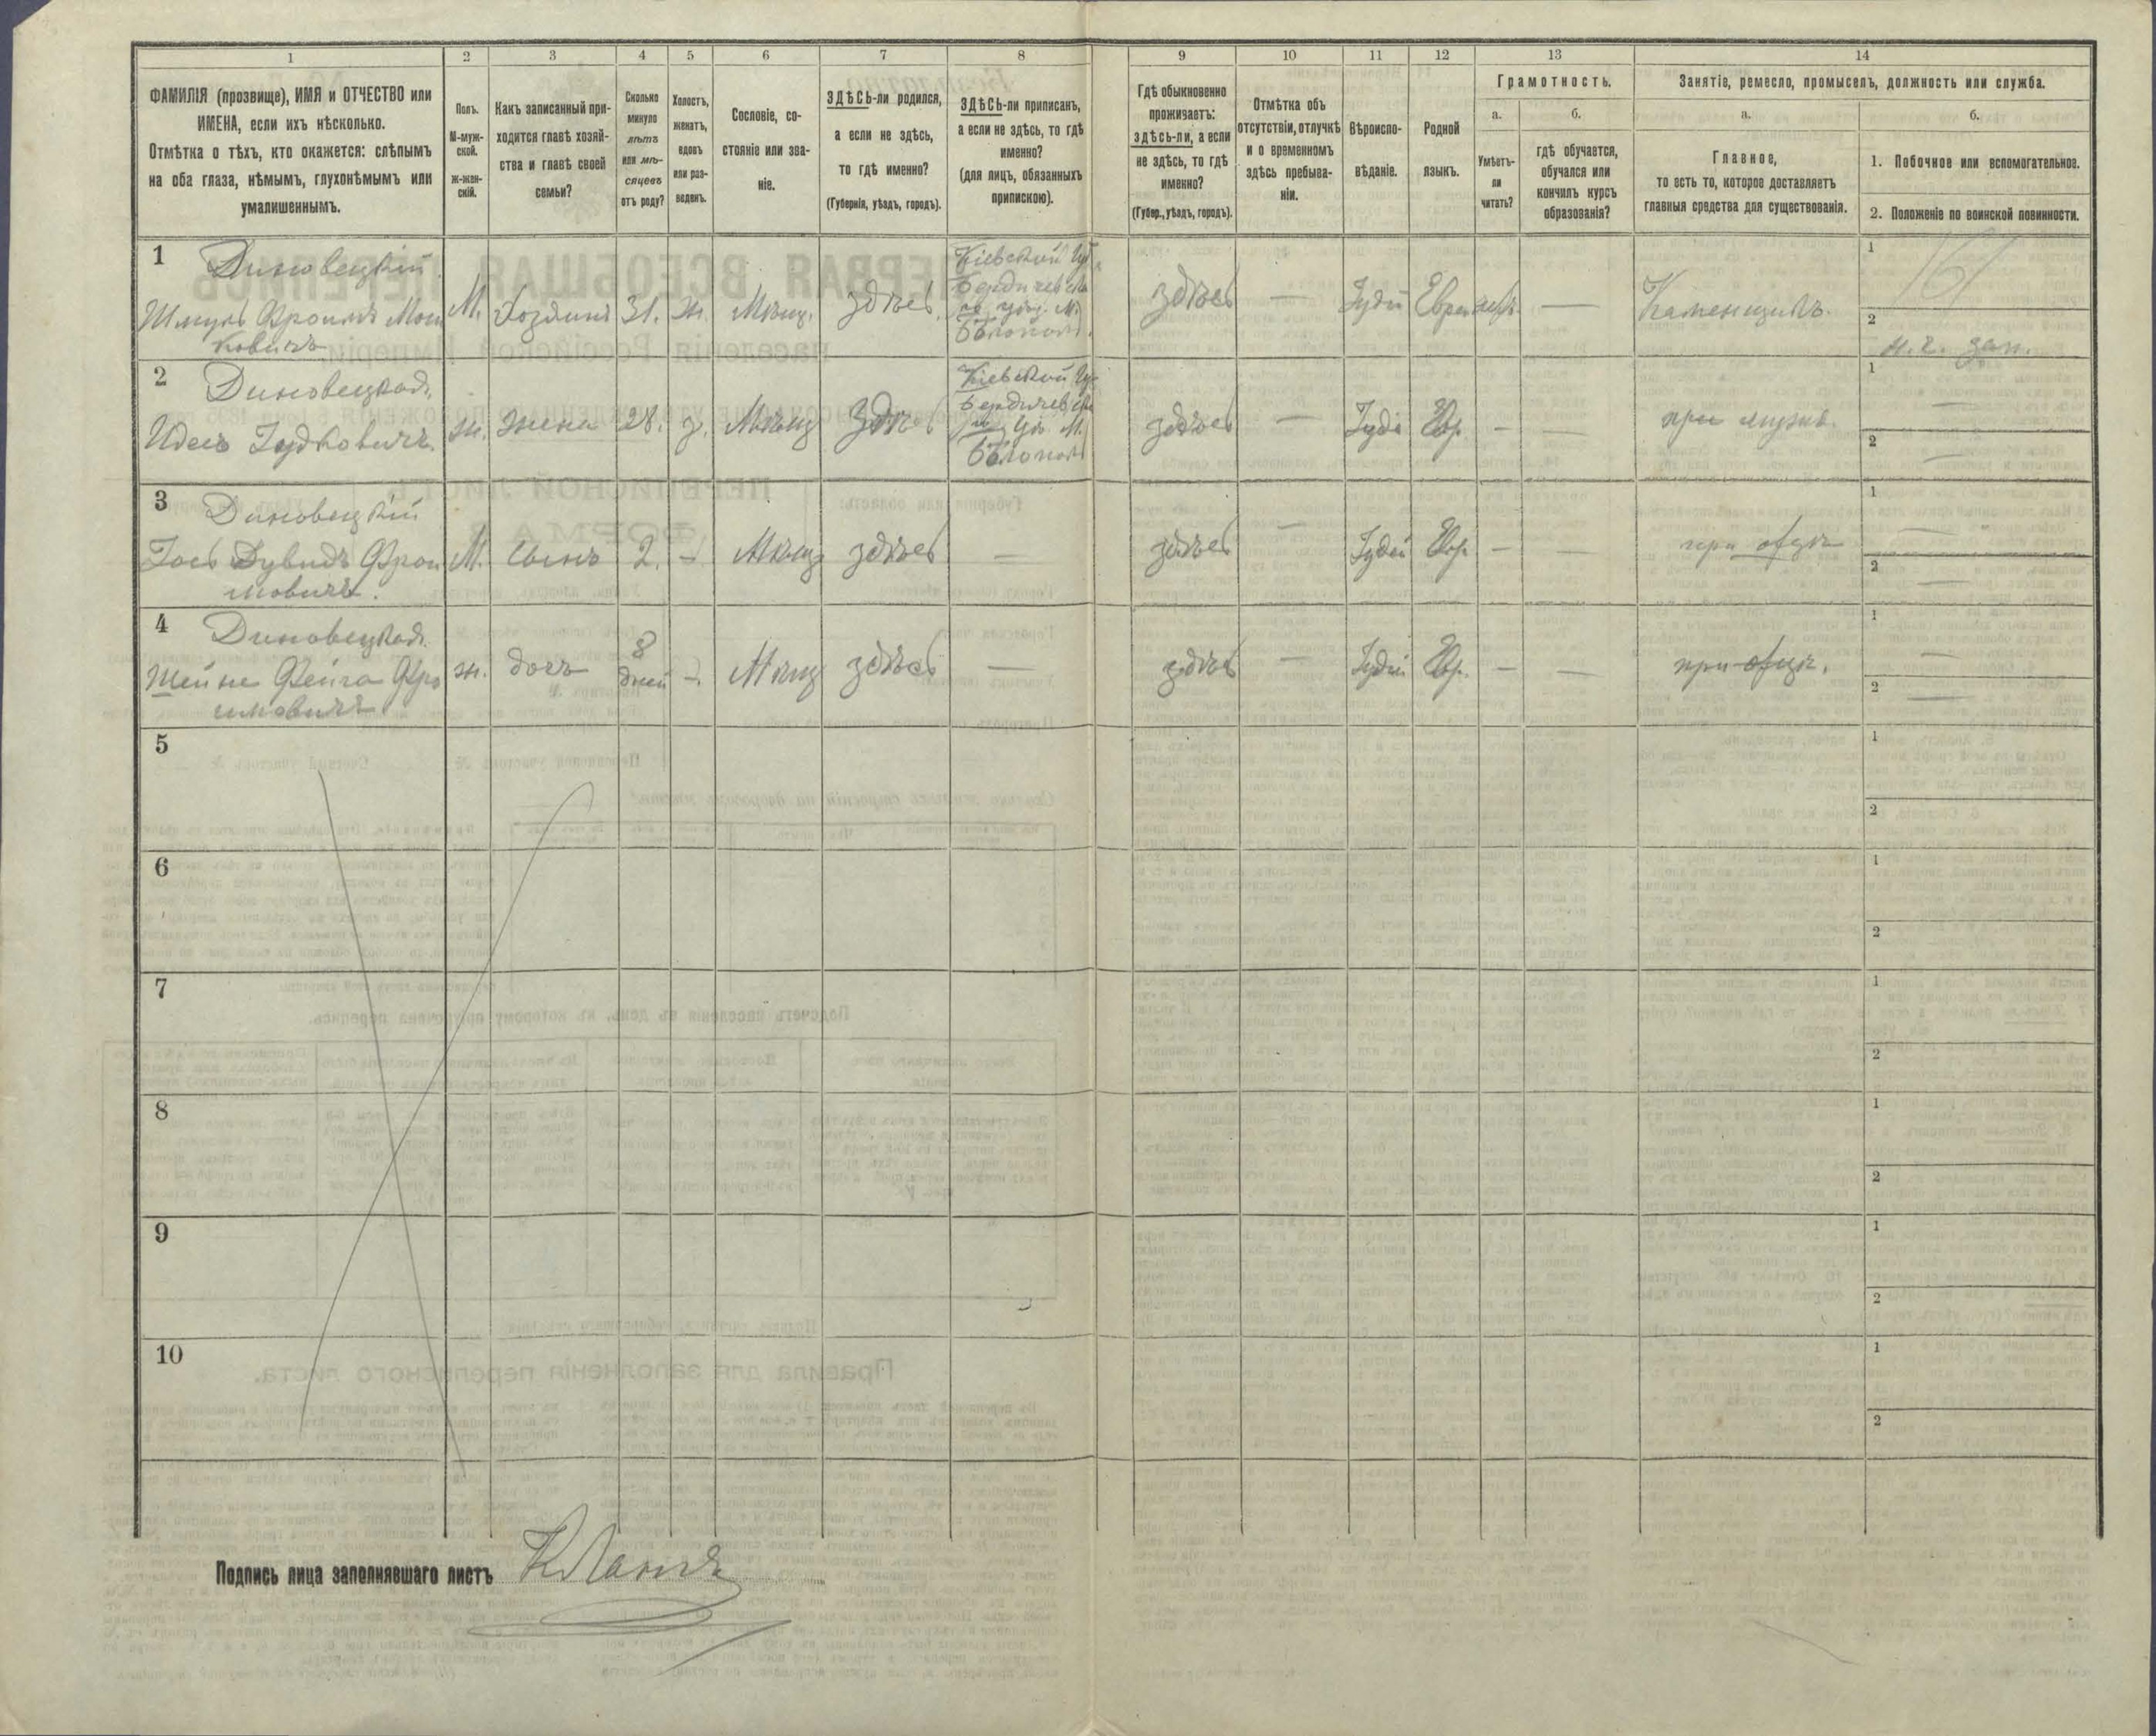 1 2 3 4 5 6 7 8 9 10 11 12 13 14
ФАМИЛІЯ (прозвище), ИМЯ и ОТЧЕСТВО или
ИМЕНА, если ихъ нѣсколько.
Отмѣтка о тѣхъ, кто окажется: слѣпымъ
на оба глаза, нѣмымъ, глухонѣмымъ или
умалишеннымъ.
Полъ.
М-муж-
ской.
ж-жен-
скій.
Какъ записанный при-
ходится главѣ хозяй-
ства и главѣ своей
семьи?
Сколько
минуло
лѣтъ
или мѣ-
сяцевъ
отъ роду?
Холостъ,
женатъ,
вдовъ
или раз-
веденъ.
Сословіе, со-
стояніе или зва-
ніе.
ЗДѢСЬ-ли родился,
а если не здѣсь,
то гдѣ именно?
(Губернія, уѣздъ, городъ).
ЗДѢСЬ-ли приписанъ,
а если не здѣсь, то гдѣ
именно?
(для лицъ, обязанныхъ
припискою).
Гдѣ обыкновенно
проживаетъ:
здѣсь-ли, а если
не здѣсь, то гдѣ
именно?
(Губер., уѣздъ, городъ).
Отмѣтка объ
отсутствіи, отлучкѣ
и о временномъ
здѣсь пребыва-
ніи.
Вѣроиспо-
вѣданіе.
Родной
языкъ.
Грамотность.
а.
Умѣетъ-
ли
читать?
б.
гдѣ обучается,
обучался или
кончилъ курсъ
образованія?
Занятіе, ремесло, промыселъ, должность или служба.
а.
Главное,
то есть то, которое доставляетъ
главныя средства для существованія.
б.
1. Побочное или вспомогательное.
2. Положеніе по воинской повинности.
1
Диновецкій
Шмуль Фроимъ Мош
ковичъ
М. Хозяинъ 31. ж. Мѣщ. здѣсь
Кіевской Гу
Бердичевск
Бѣлопол
здѣсь — Іудй Евреи —
Каменщикъ.
1
2
2
Диновецкая,
Идесъ Іудковичъ.
ж. жена 28. з. Мѣщ здѣсь
Кіевской Гу
Бердичевск
Бѣлопол
здѣсь — Іуді Евр. — —
при мужѣ.
1 —
2 —
3
Диновецкій
Іось Дувидъ Фрои
мовичъ.
М. Сынъ 2. — Мѣщ здѣсь —
здѣсь — Іудей Евр. — —
при отцѣ
1 —
2 —
4
Диновецкая.
Шейне Фейга Фро
имовичъ
ж. дочь 8
дней — Мѣщ здѣсь —
здѣсь — Іудей Евр. — —
при отцѣ.
1 —
2 —
5
1
2
6
1
2
7
1
2
8
1
2
9
1
2
10
1
2
Подпись лица заполнявшаго листъ